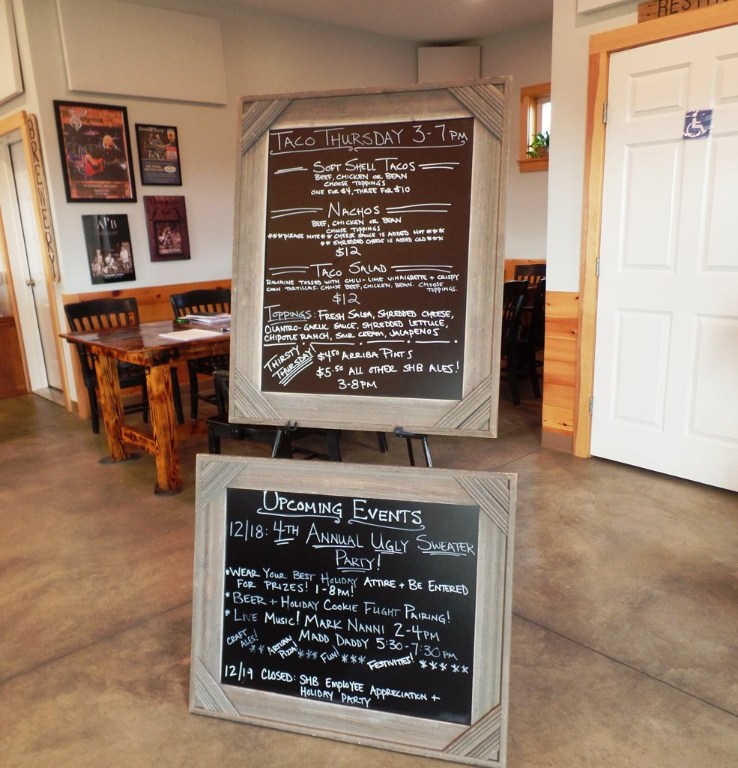 RESTR
BREWERY
APB
TACO THURSDAY 3-7PM
SOFT SHELL TACOS
BEEF, CHICKEN OR BEAN
CHOOSE TOPPINGS
ONE FOR $4, THREE FOR $10
NACHOS
BEEF, CHICKEN OR BEAN
CHOOSE TOPPINGS
***PLEASE NOTE** CHEESE SAUCE IS ADDED HOT ****
** SHREDDED CHEESE IS ADDED COLD ***
$12
TACO SALAD
ROMAINE TOSSED WITH CHILI-LIME VINAIGRETTE + CRISPY
CORN TORTILLAS. CHOOSE BEEF, CHICKEN, BEAN. CHOOSE
TOPPINGS.
$12
TOPPINGS: FRESH SALSA, SHREDDED CHEESE,
CILANTRO-GARLIC SAUCE, SHREDDED LETTUCE,
CHIPOTLE RANCH, SOUR CREAM, JALAPENOS
THIRSTY
THURSDAY!
$4.50 ARRIBA PINTS
$5.50 ALL OTHER SHB ALES!
3-8PM
UPCOMING EVENTS
12/18: 4TH ANNUAL UGLY SWEATER
PARTY!
• WEAR YOUR BEST HOLIDAY ATTIRE + BE ENTERED
FOR PRIZES! 1-8PM!
• BEER + HOLIDAY COOKIE FLIGHT PAIRING!
• LIVE MUSIC! MARK NANNI 2-4PM
MADD DADDY 5:30-7:30PM
CRAFT ALES! ** ARTISAN PIZZA! *** FUN! *** FESTIVITIES! *****
12/19 CLOSED: SHB EMPLOYEE APPRECIATION +
HOLIDAY PARTY